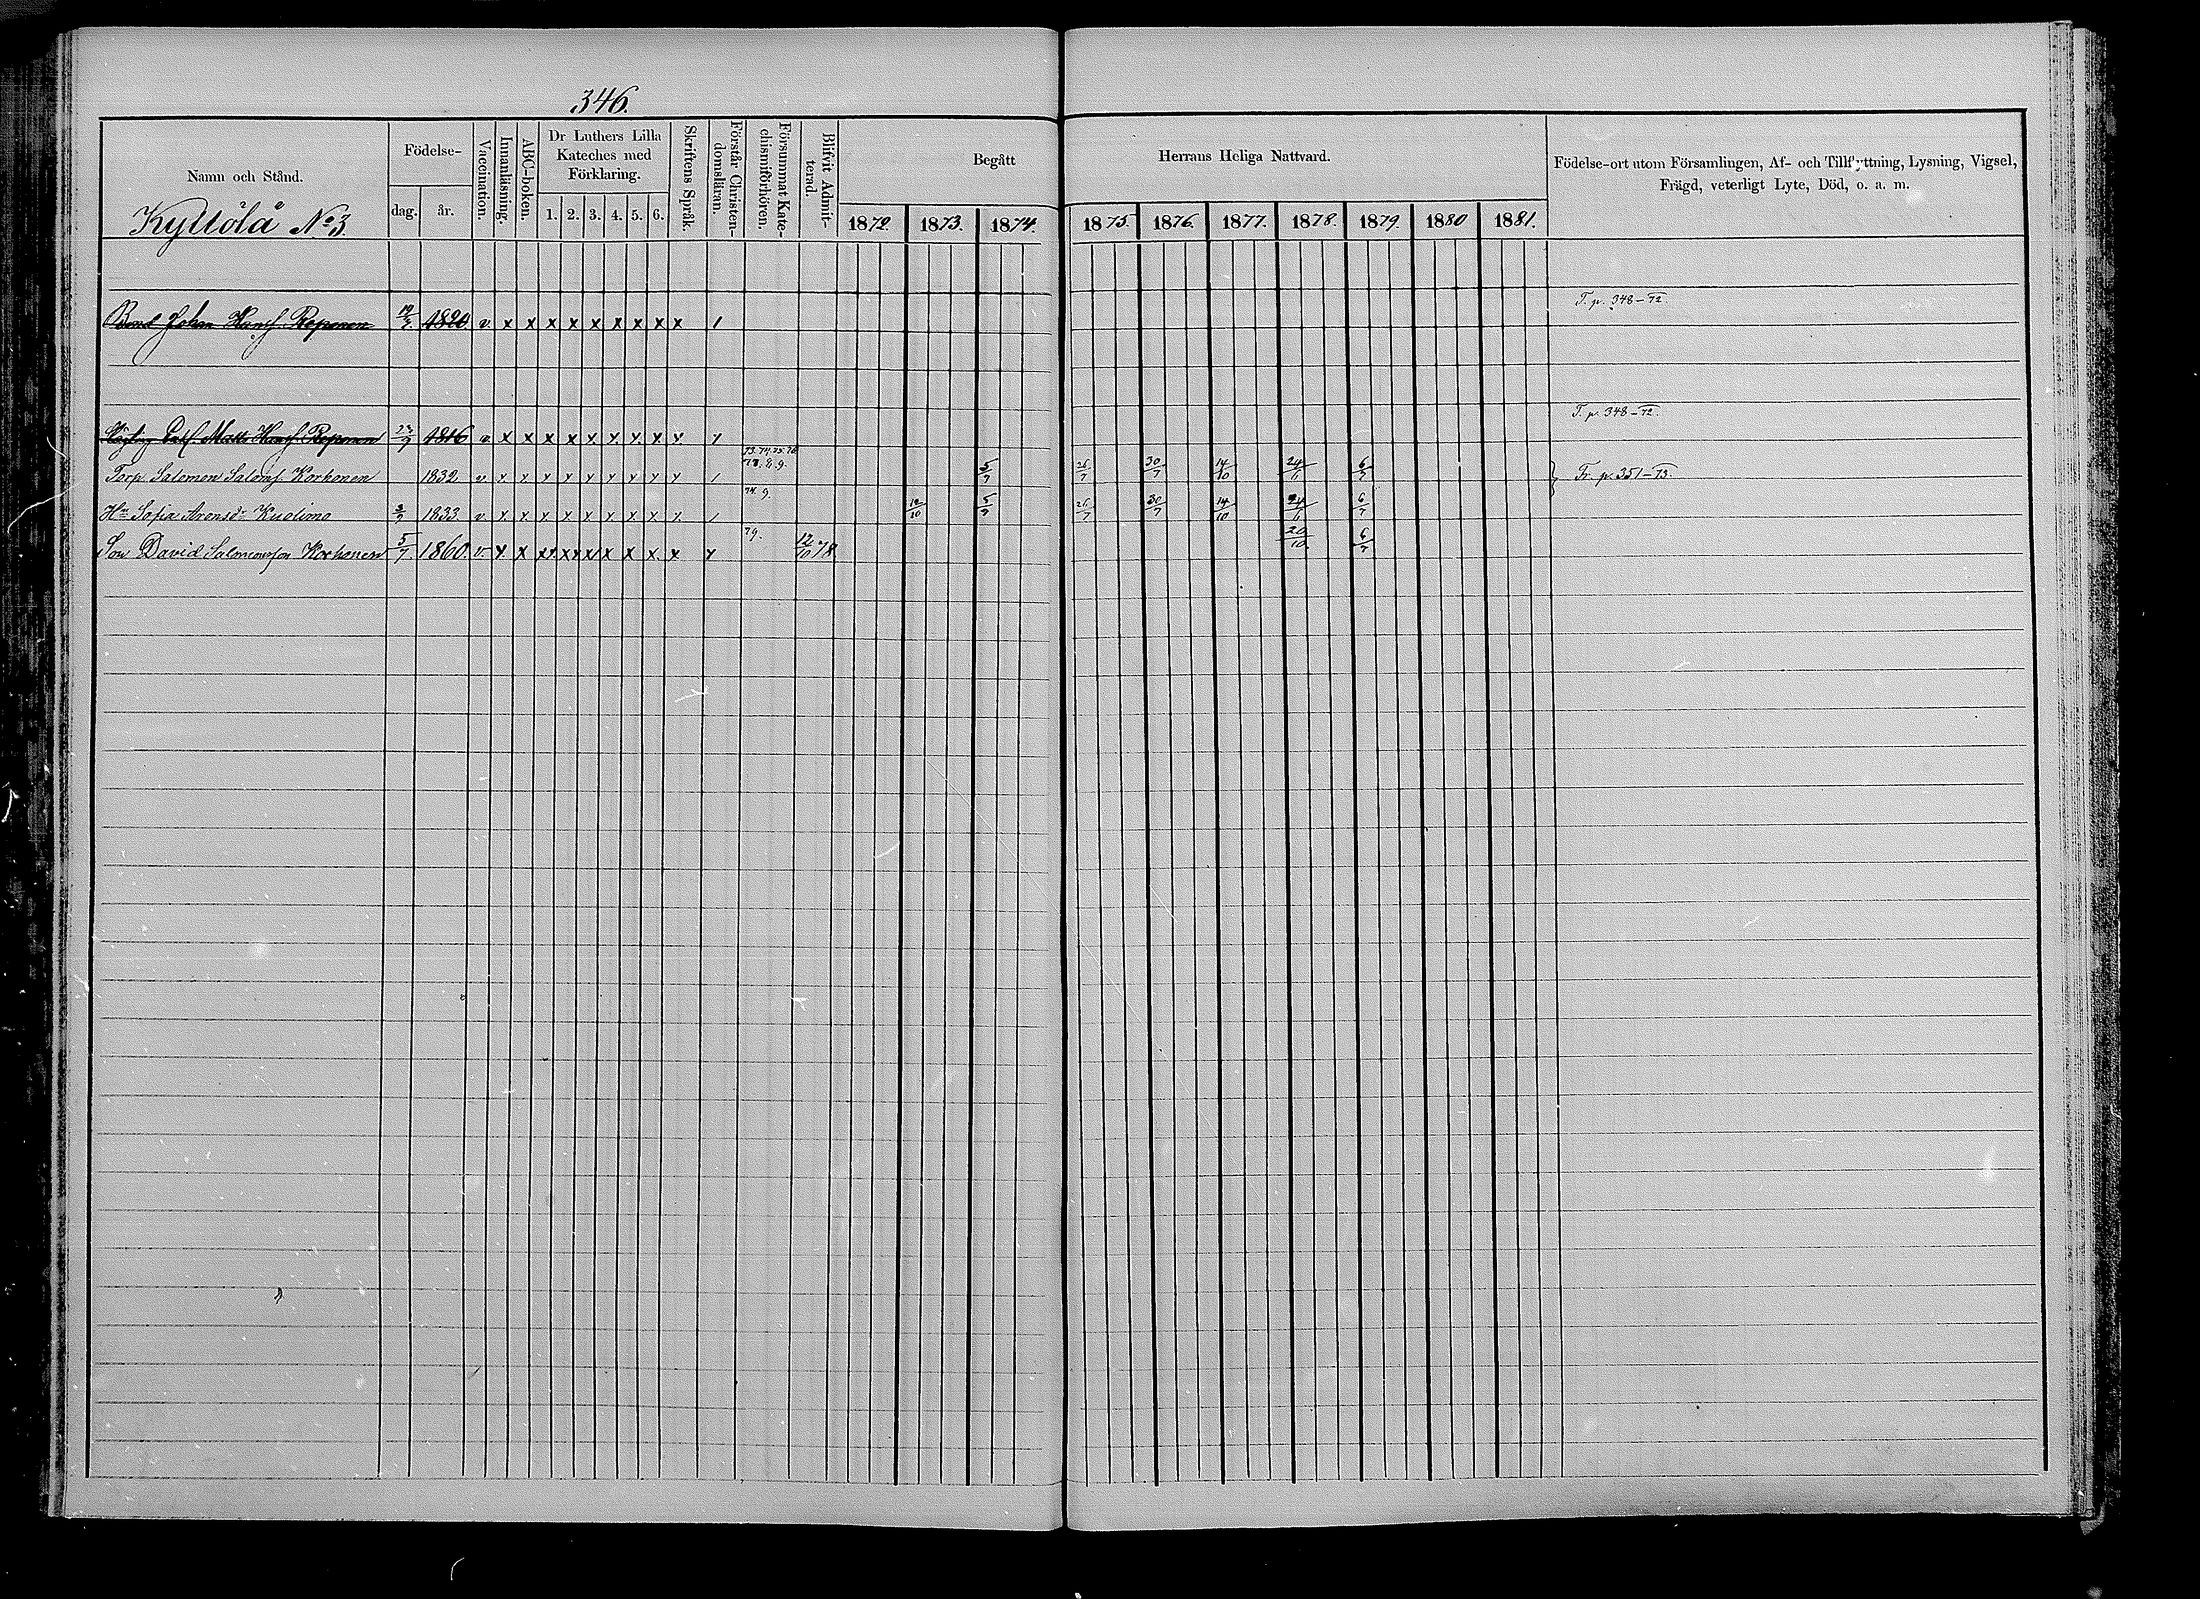 346.
Namn och Stånd.
Födelse-
dag.
år.
Vaccination.
Innanläsning.
ABC-boken.
Dr Luthers Lilla
Kateches med
Förklaring.
1. 2. 3. 4. 5. 6.
Skriftens Språk.
Förstår Christen-
domsläran.
Försummat Kate-
chismiförhören.
Blifvit Admit-
terad.
Begått
Herrans Heliga Nattvard.
1872. 1873. 1874. 1875. 1876. 1877. 1878. 1879. 1880 1881.
Födelse-ort utom Församlingen, Af- och Tillflyttning, Lysning, Vigsel,
Frägd, veterligt Lyte, Död, o. a. m.
Kyttölä No 3
T. p. 348-72.
Bond Johan Reponen 1820 v. x x x x x x x x x /
T. p. 348-72.
Matts Reponen 23/9 1816 v. x x x x x x x x x x
Torp. Salomon Salomsf Korhonen 1832 v. x x x x x x x x x / 5/7 26/7 30/7 14/10 24/6 6/7 Fr. p. 351-73.
Hu Sofia Aronsdr Kuolimo 1833. v. x x x x x x x x x / 74. 9. 12/10 5/7 26/7 30/7 14/10 24/6 6/7
Son David Salomonsson Korhonen 5/7. 1860. v. x x x x x x x x x x 79. 12/10 78 20/10 6/7